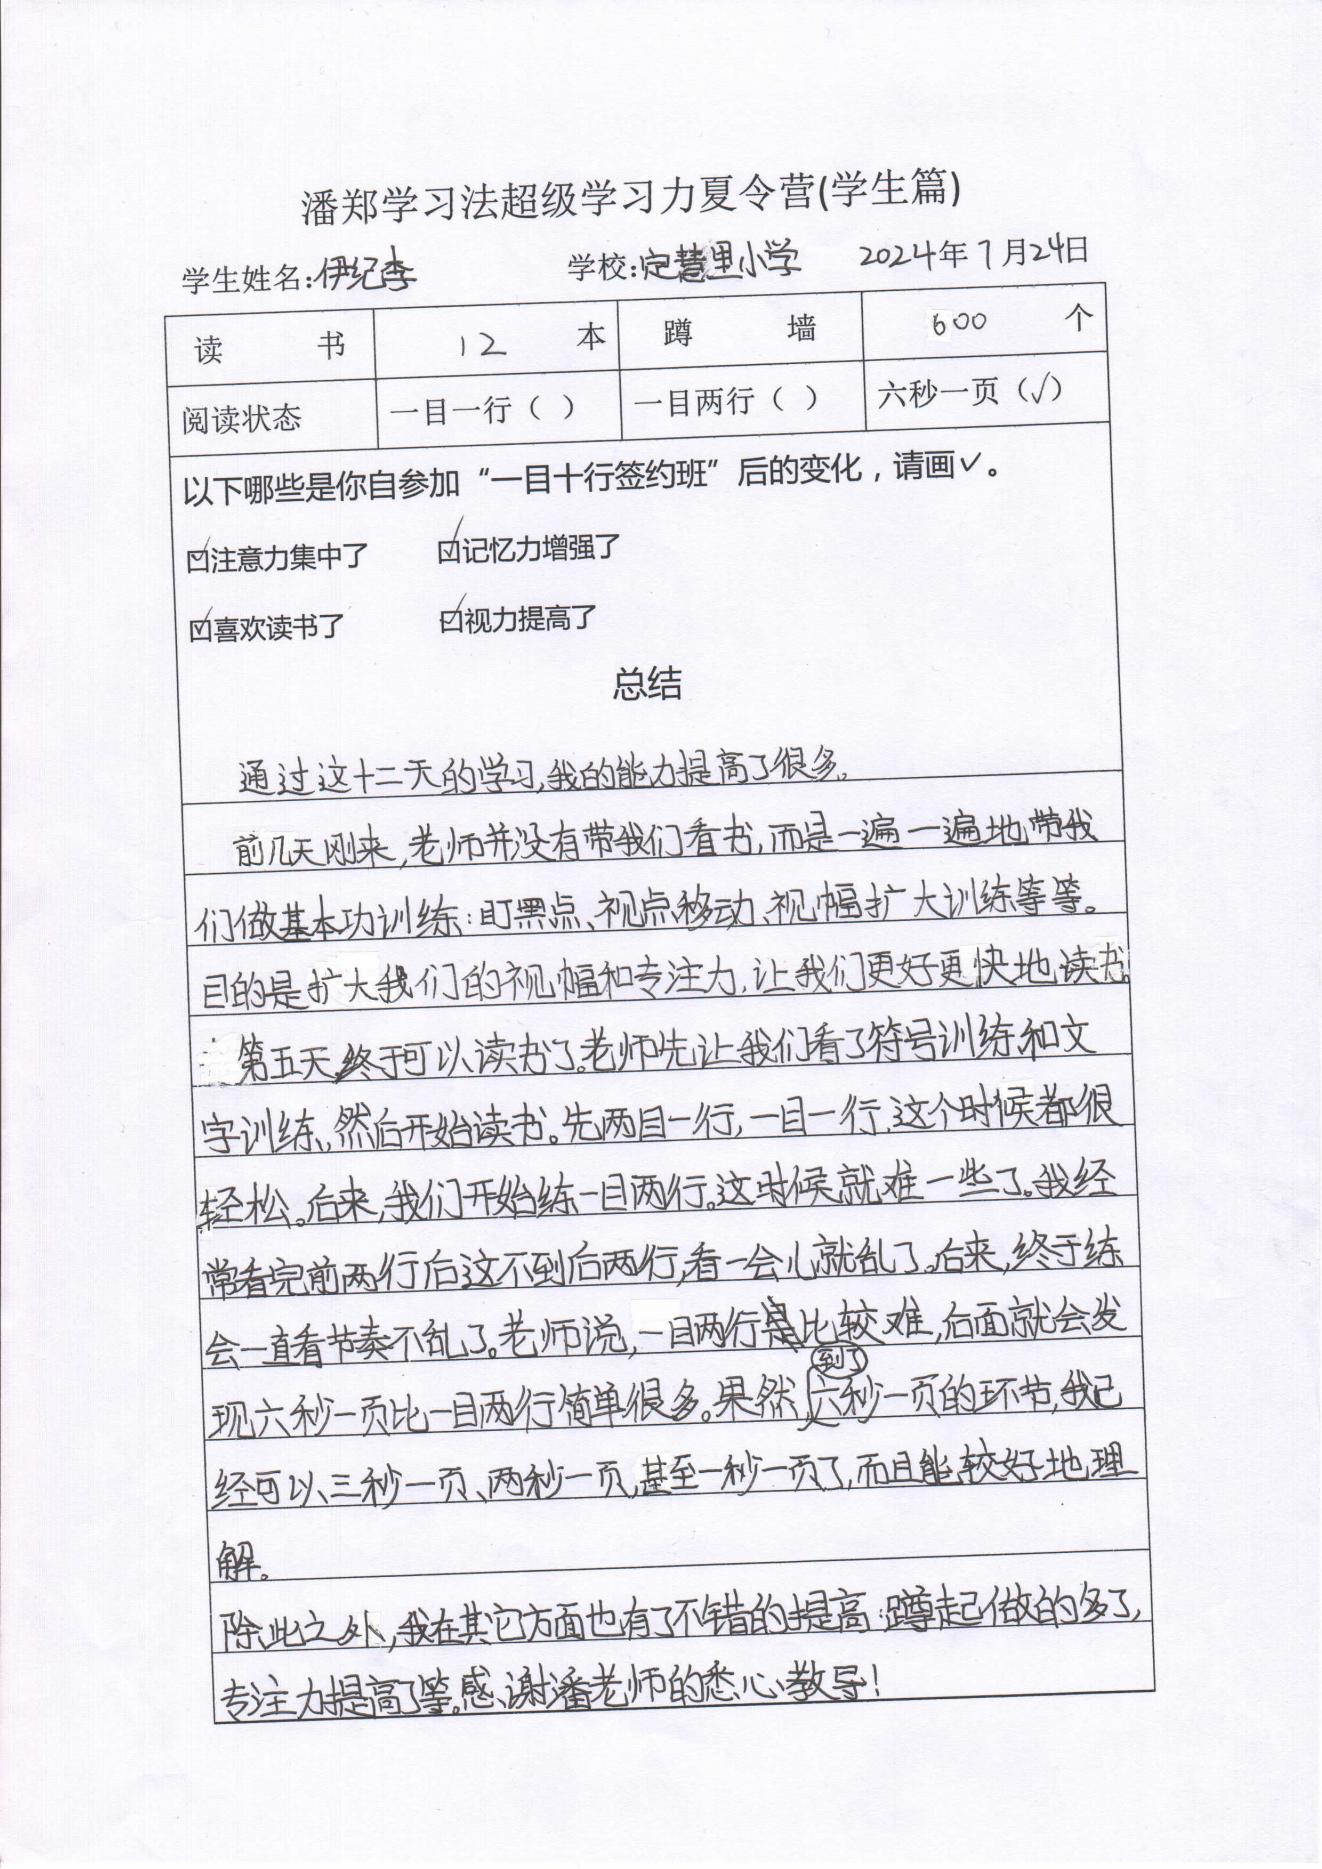 潘郑学习法超级学习力夏令营(学生篇)
学生姓名:伊纪李 学校:定慧里小学 2024年7月24日
读 书 12 本 蹲 墙 600 个
阅读状态 一目一行（ ） 一目两行（ ） 六秒一页（√）
以下哪些是你自参加“一目十行签约班”后的变化，请画✓。
☑注意力集中了 ☑记忆力增强了
☑喜欢读书了 ☑视力提高了
总结
通过这十二天的学习,我的能力提高了很多。
前几天刚来,老师并没有带我们看书,而是一遍一遍地带我
们做基本功训练:盯黑点、视点移动、视幅扩大训练等等。
目的是扩大我们的视幅和专注力,让我们更好更快地读书。
第五天,终于可以读书了。老师先让我们看了符号训练和文
字训练,然后开始读书。先两目一行,一目一行,这个时候都很
轻松。后来,我们开始练一目两行。这时候就难一些了。我经
常看完前两行后这不到后两行,看一会儿就乱了。后来,终于练
会一直看节奏不乱了。老师说,一目两行是比较难,后面就会发
现六秒一页比一目两行简单很多。果然,到了六秒一页的环节,我已
经可以三秒一页、两秒一页,甚至一秒一页了,而且能较好地理
解。
除此之外,我在其它方面也有了不错的提高:蹲起做的多了,
专注力提高了等。感谢潘老师的悉心教导!